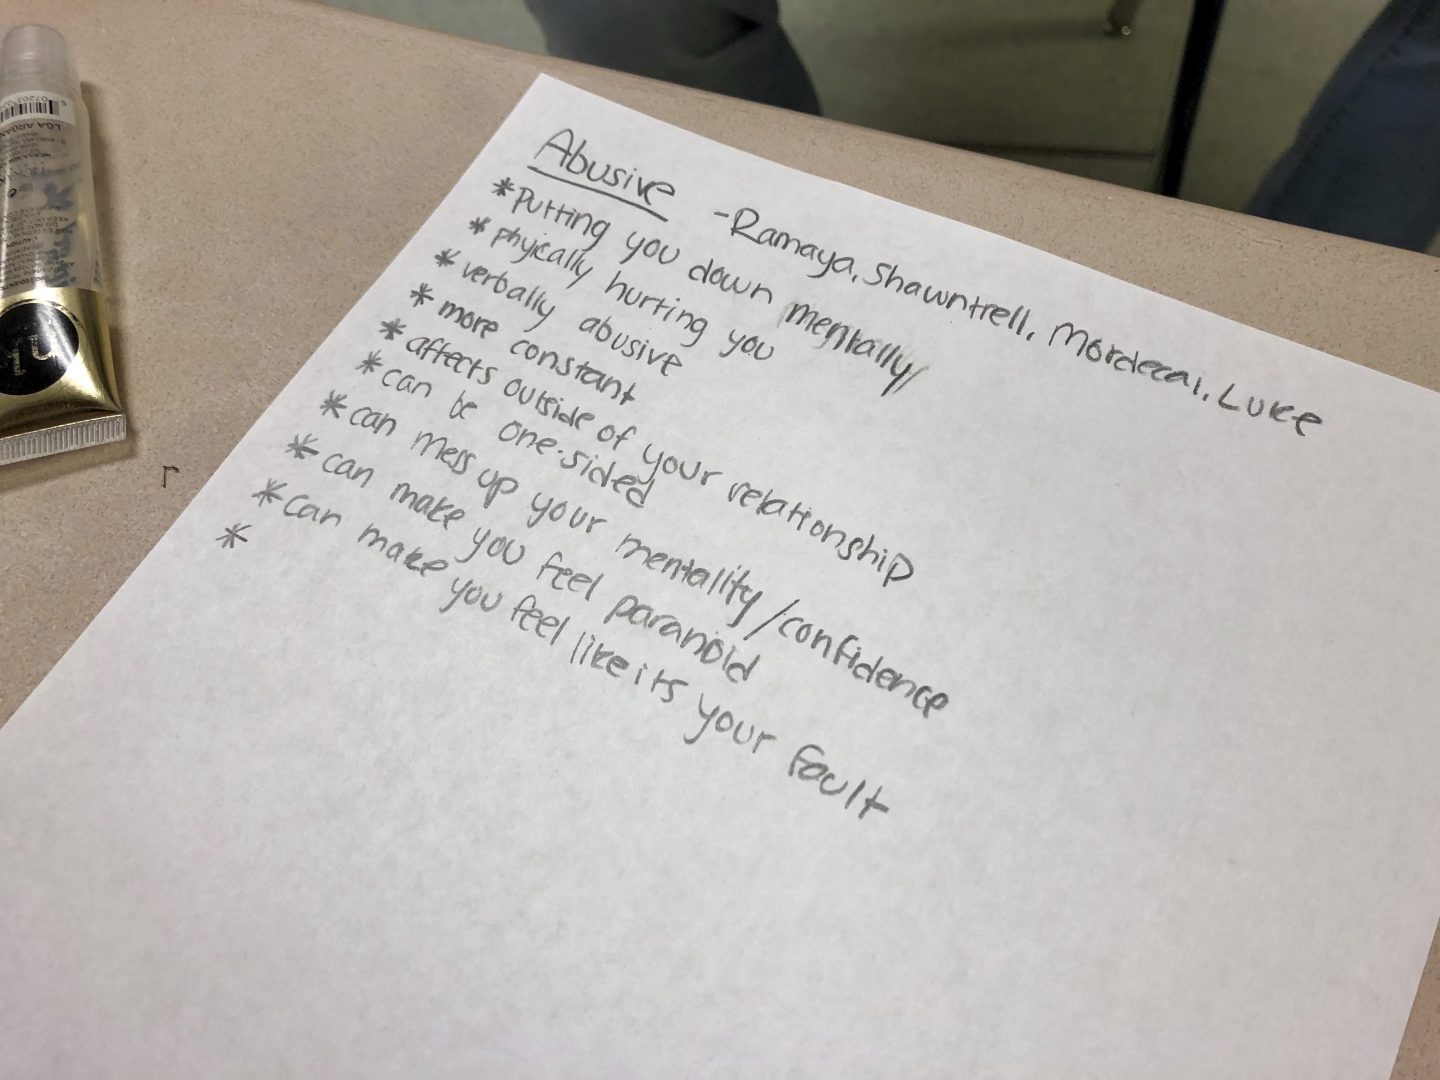 Abusive - Ramaya, Shawntrell, Mordecai, Luke
* Putting you down mentally/
* phyically hurting you
* verbally abusive
* more constant
* affects outside of your relationship
* can be one-sided
* can mess up your mentality/confidence
* can make you feel paranoid
* can make you feel like its your fault
*
LGA ARGAN